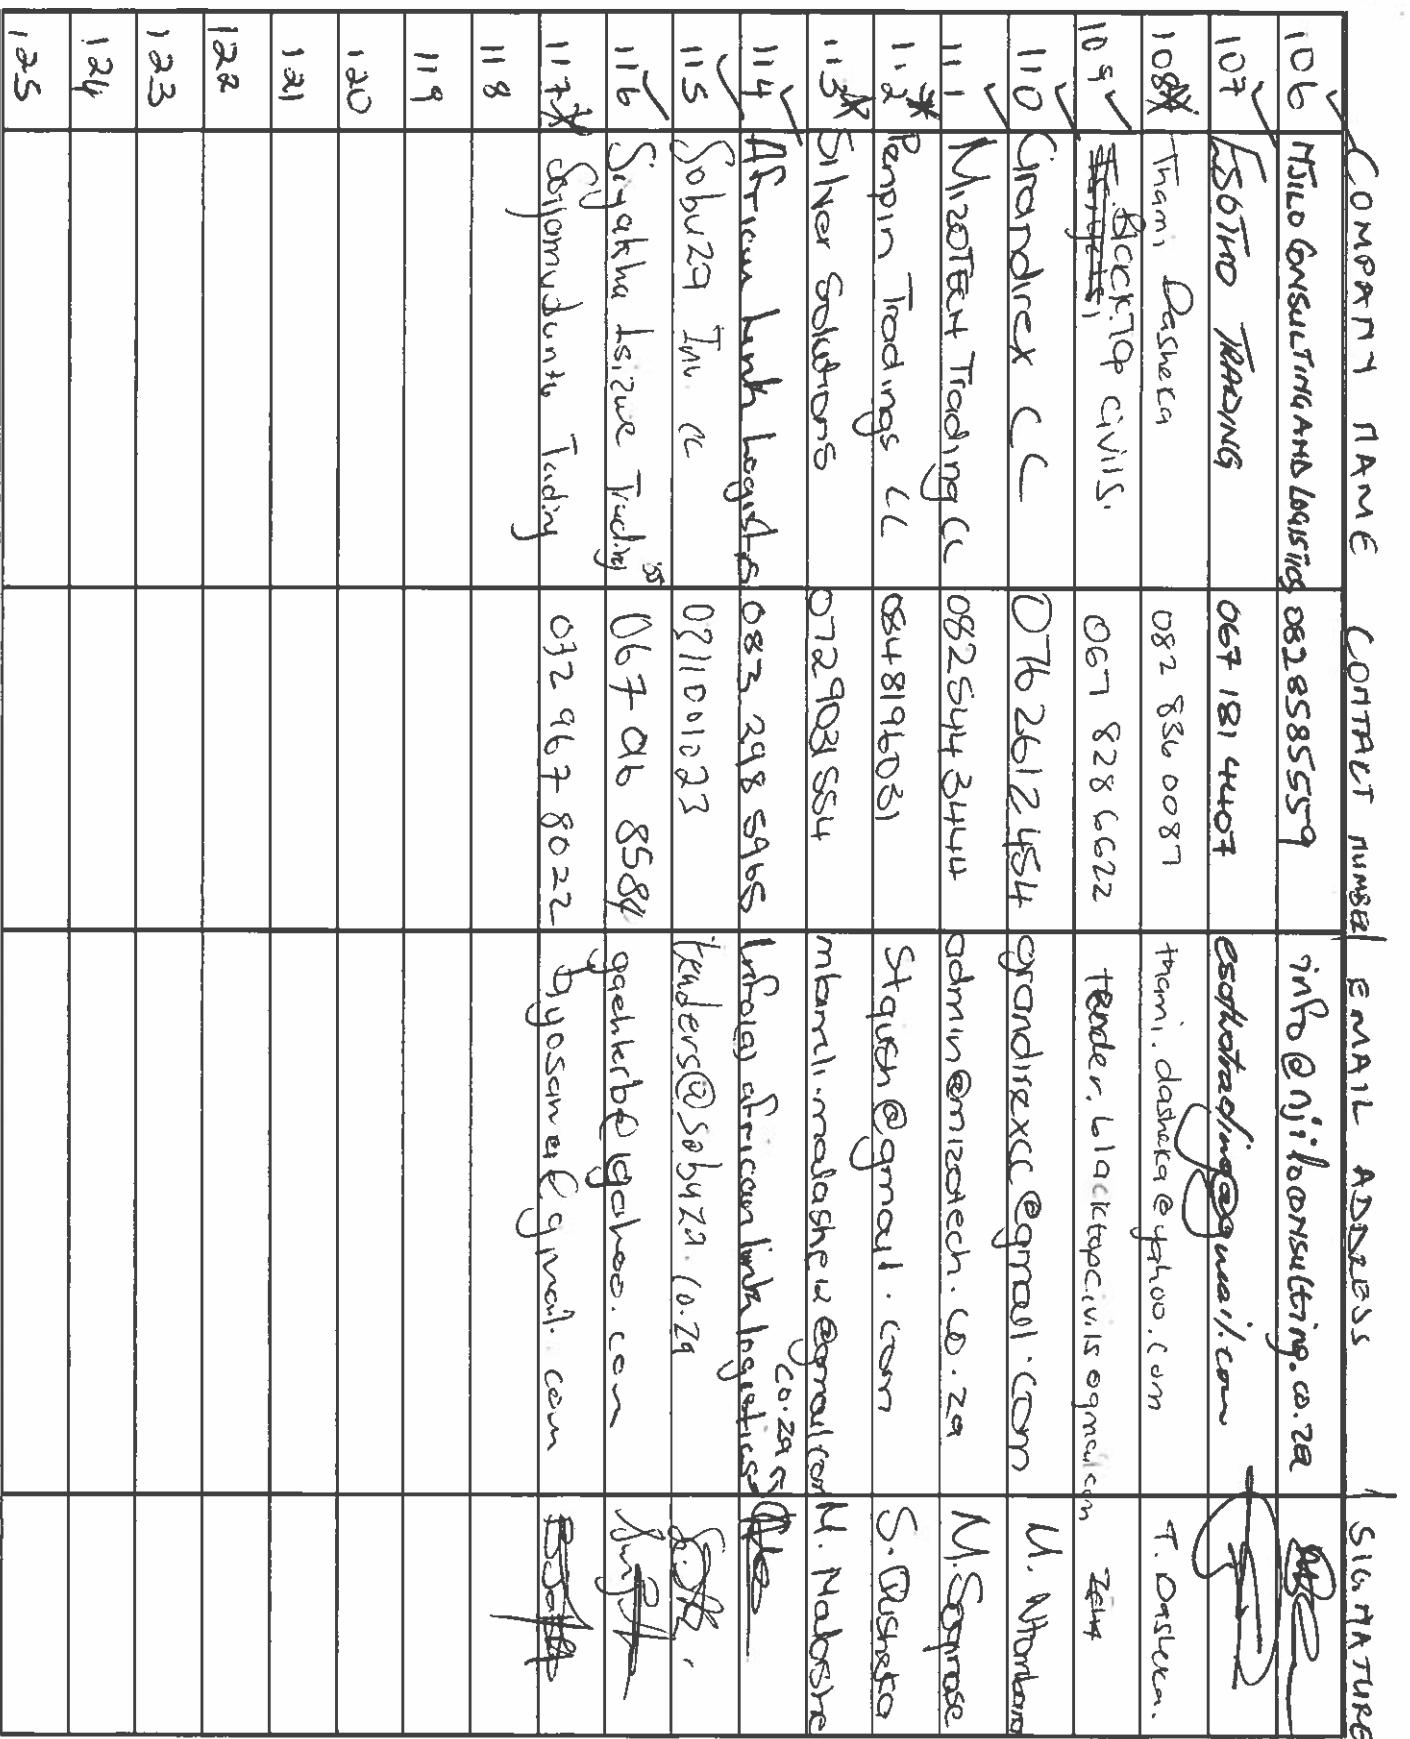 COMPANY NAME CONTACT NUMBER EMAIL ADDRESS SIGNATURE
106 ✓ NJILO CONSULTING AND LOGISTICS 0828585559 info@njiloconsulting.co.za
107 ✓ ESOTHO TRADING 067 181 4407 esothotrading@gmail.com
108 Thami Dasheka 082 836 0087 thami.dasheka@yahoo.com T. Dasheka.
109 ✓ Blacktop Civils. 067 828 6622 tender.blacktopcivils@gmail.com
110 ✓ Grandirex CC 076 2612454 grandirexcc@gmail.com N. Ntombana
111 ✓ MIZOTECH Trading CC 0825443444 admin@mizotech.co.za
112 * Penpin Tradings CC 0848196031 Stqush@gmail.com S. Qusheka
113 Silver Solutions 0729031554 M. Malashe
114 ✓ African Link Logistics 083 298 5965 africanlinklogistics.co.za
115 ✓ Sobuza Inv. cc 0711001023 tenders@sobuza.co.za
116 ✓ Siyakha Isizwe Trading 067 096 8584 @yahoo.com
117 Trading 032 967 8022 @gmail.com
118
119
120
121
122
123
124
125